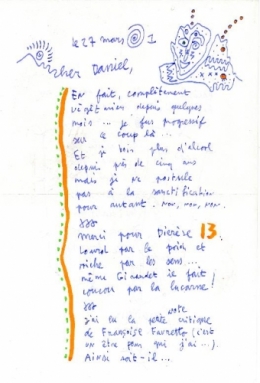 le 27 mars 1
Cher Daniel,
En fait, complètement
végétarien depuis quelques
mois... je fus progressif
sur ce coup là...
Et je bois plus d'alcool
depuis près de cinq ans
mais je ne postule
pas à la sanctification
pour autant. Non, non, non.
Merci pour Dierèse 13.
Lourd par le poids et
riche par les sens...
même Ginandet te fait
coucou par la lucarne!
j'ai lu la petite note critique
de Françoise Favretto (c'est
un être pour qui j'ai...).
Ainsi soit-il...